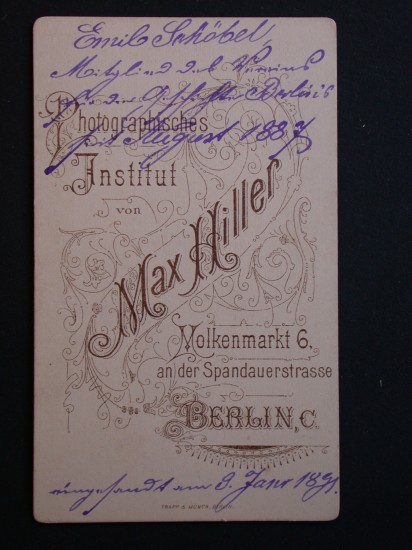 Emil Schöbel,
Mitglied des Vereins
für die Geschichte Berlin's
seit August 1887
Photographisches
Institut
von
Max Hiller
Molkenmarkt 6,
an der Spandauerstrasse
BERLIN, C.
eingesandt am 8. Janr 1891.